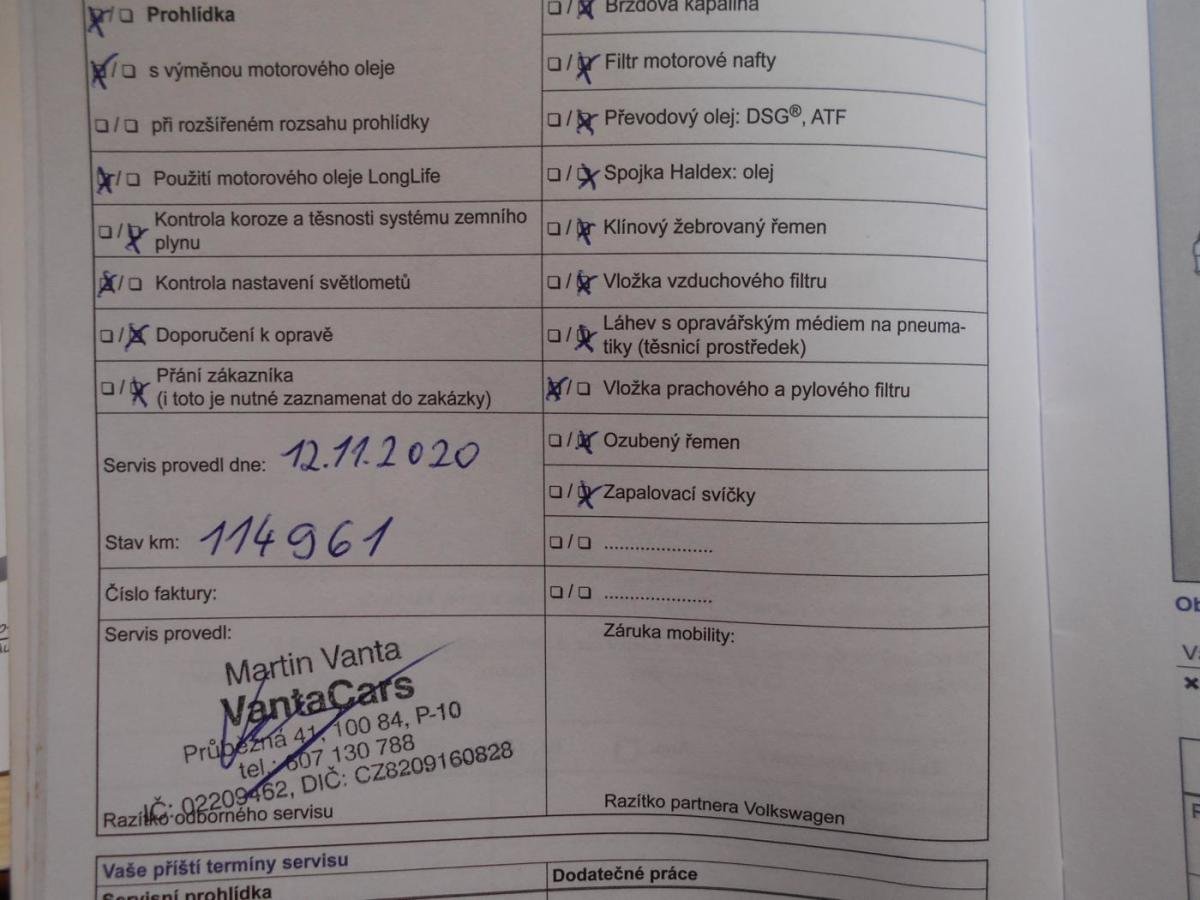 Prohlídka
s výměnou motorového oleje
při rozšířeném rozsahu prohlídky
Použití motorového oleje LongLife
Kontrola koroze a těsnosti systému zemního
plynu
Kontrola nastavení světlometů
Doporučení k opravě
Přání zákazníka
(i toto je nutné zaznamenat do zakázky)
Servis provedl dne: 12.11.2020
Stav km: 114961
Číslo faktury:
Servis provedl:
Martin Vanta
VantaCars
Průběžná 41, 100 84, P-10
tel.: 607 130 788
IČ: 02209462, DIČ: CZ8209160828
Razítko odborného servisu
Brzdová kapalina
Filtr motorové nafty
Převodový olej: DSG®, ATF
Spojka Haldex: olej
Klínový žebrovaný řemen
Vložka vzduchového filtru
Láhev s opravářským médiem na pneuma-
tiky (těsnicí prostředek)
Vložka prachového a pylového filtru
Ozubený řemen
Zapalovací svíčky
......................
......................
Záruka mobility:
Razítko partnera Volkswagen
Vaše příští termíny servisu
Servisní prohlídka
Dodatečné práce
Ob